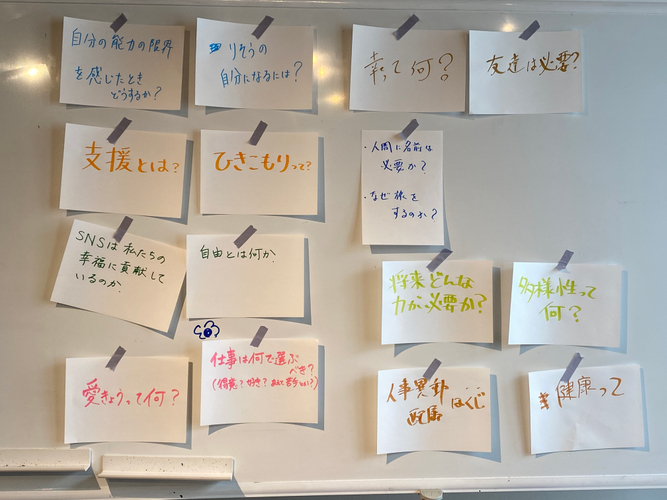 自分の能力の限界
を感じたとき
どうするか?
りそうの
自分になるには?
幸って何?
友達は必要?
支援とは?
ひきこもりって?
・人間に名前は
必要か?
・なぜ旅を
するのか?
SNSは私たちの
幸福に貢献して
いるのか
自由とは何か
将来どんな
力が必要か?
多様性って
何?
愛きょうって何?
仕事は何で選ぶ
べき?
(得意?好き?
人事異動
配属 はくじ
健康って